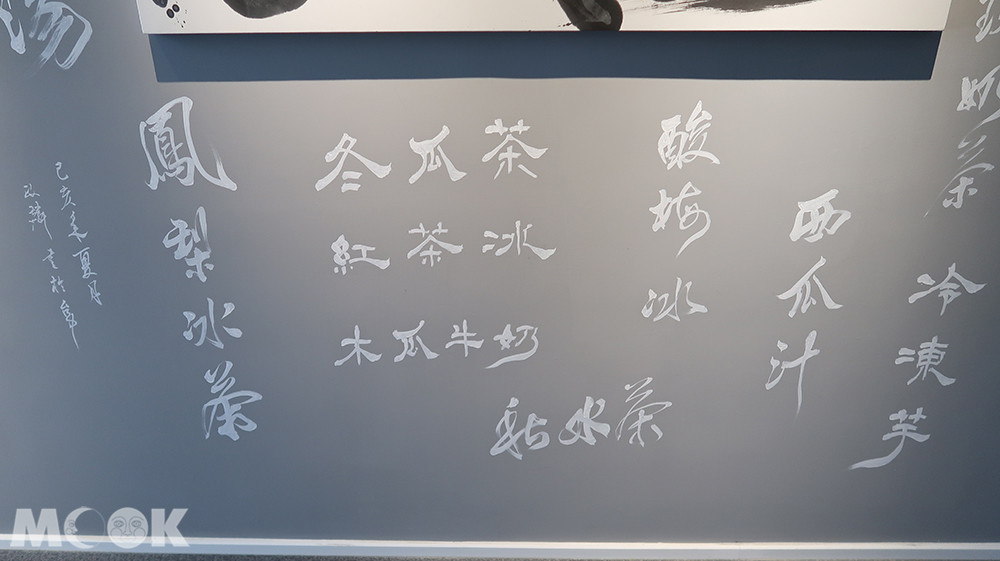 冷凍芋
西瓜汁
酸梅冰
冬瓜茶
紅茶冰
木瓜牛奶
水茶
鳳梨冰茶
湯
己亥年夏月
書於
MOOK